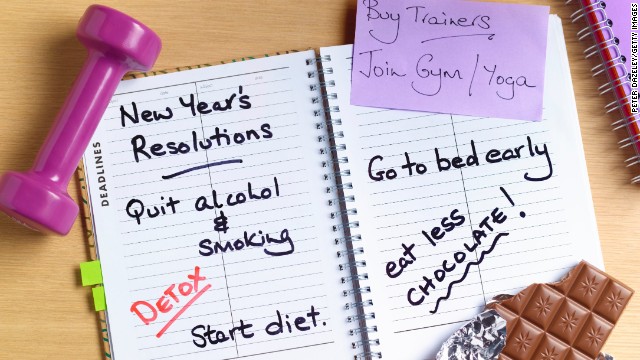 DEADLINES
New Year's
Resolutions
Quit alcohol
&
Smoking
DETOX
Start diet.
Buy Trainers
Join Gym/Yoga
Go to bed early
eat less
CHOCOLATE!
PETER DAZELEY/GETTY IMAGES